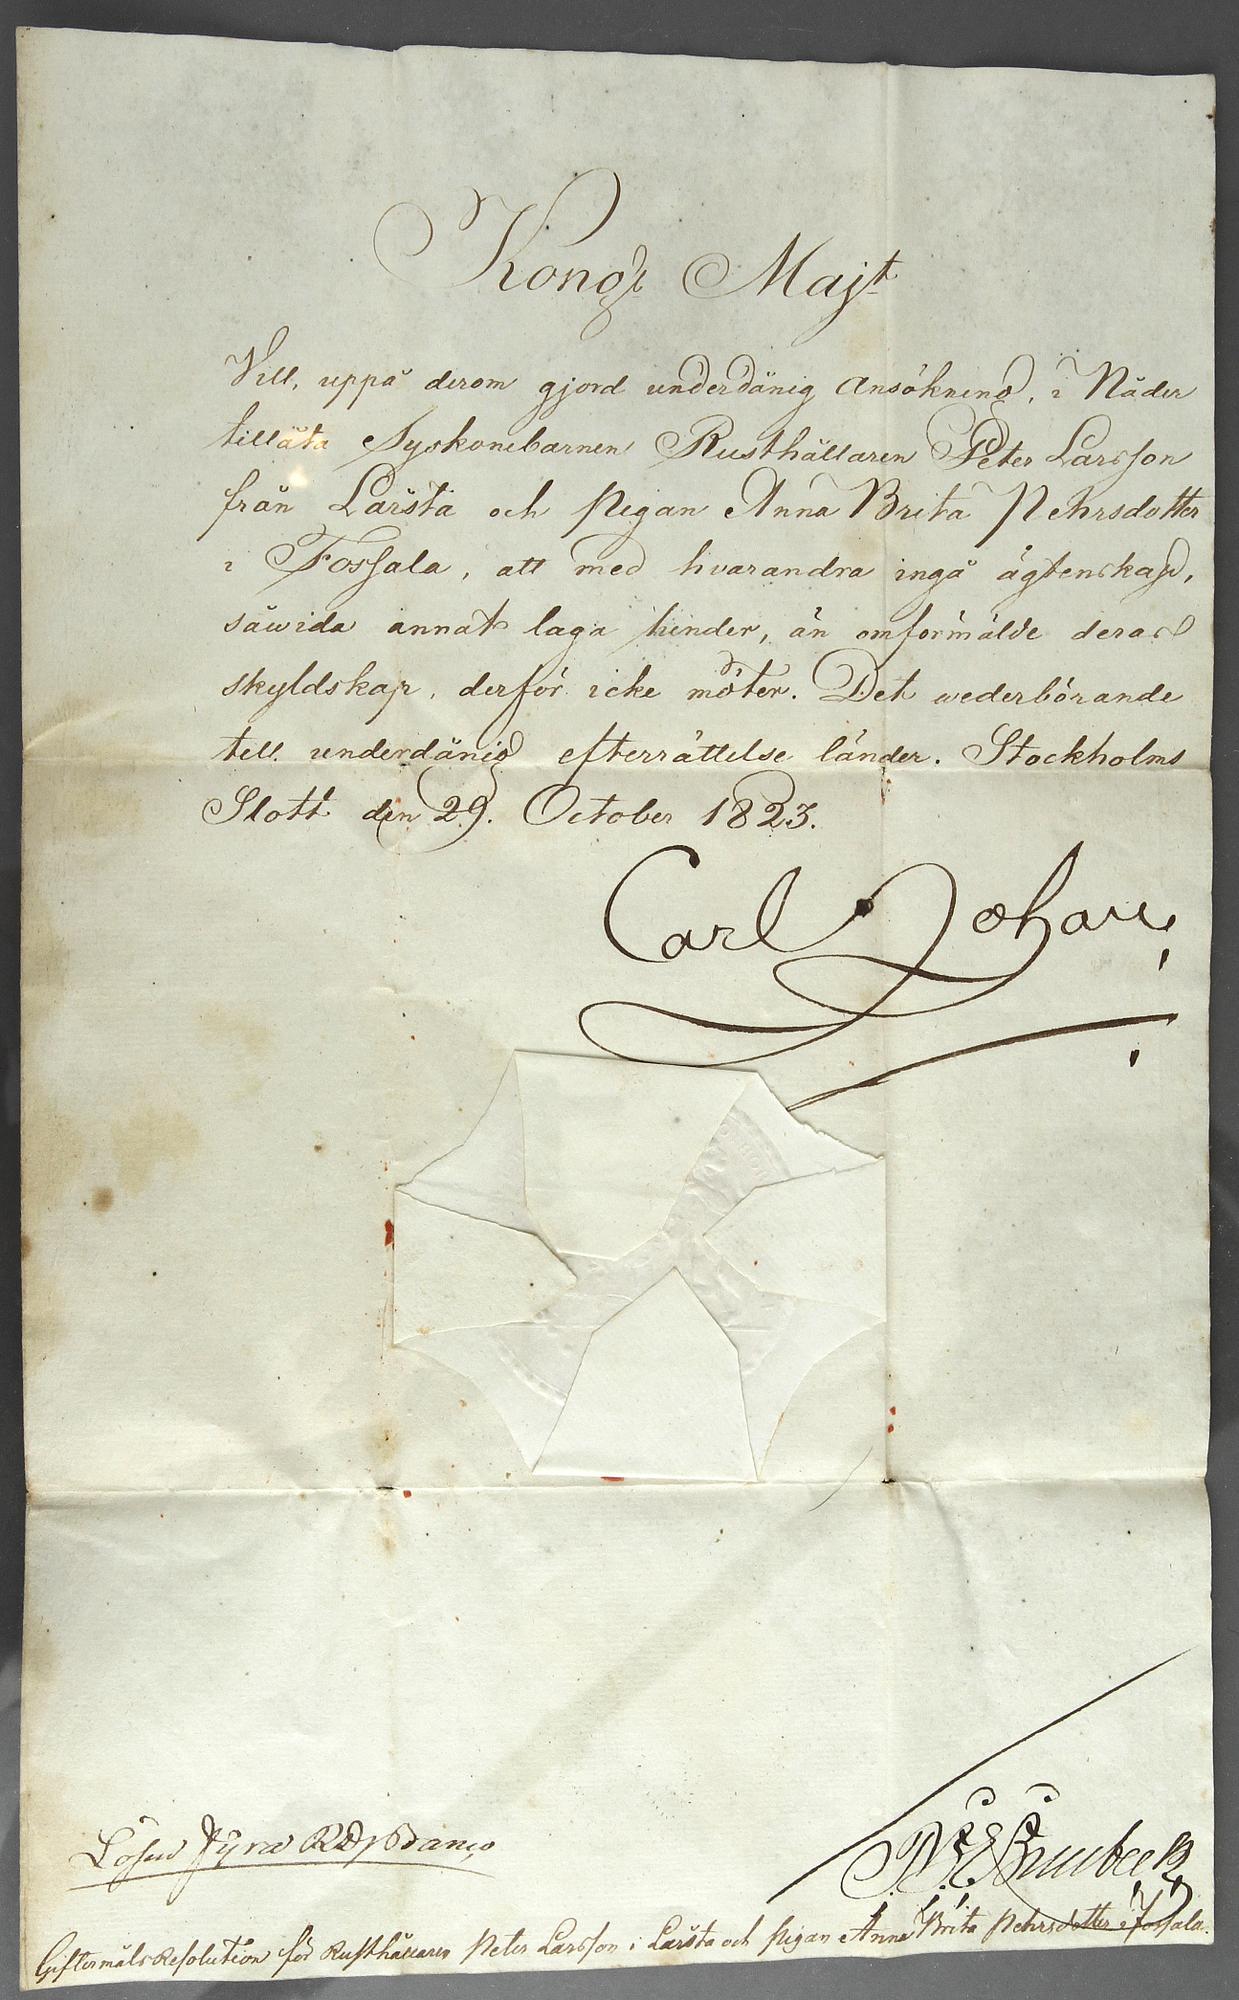 Kongl Majt
Vill, uppå derom gjord underdånig ansökning, i Nåder
tillåta Syskonebarnen Rusthållaren Peter Larsson
från Larsta och pigan Anna Brita Pehrsdotter
i Fossala, att med hvarandra ingå ägtenskap,
såwida annat laga hinder, än omförmälde deras
skyldskap, derför icke möter. Det wederbörande
till underdånig efterrättelse länder. Stockholms
Slott den 29. October 1823.
Carl Johan
Lösen Fyra RD Banco
Giftermåls Resolution för Rusthållaren Peter Larsson i Larsta och pigan Anna Brita Pehrsdotter i Fossala.